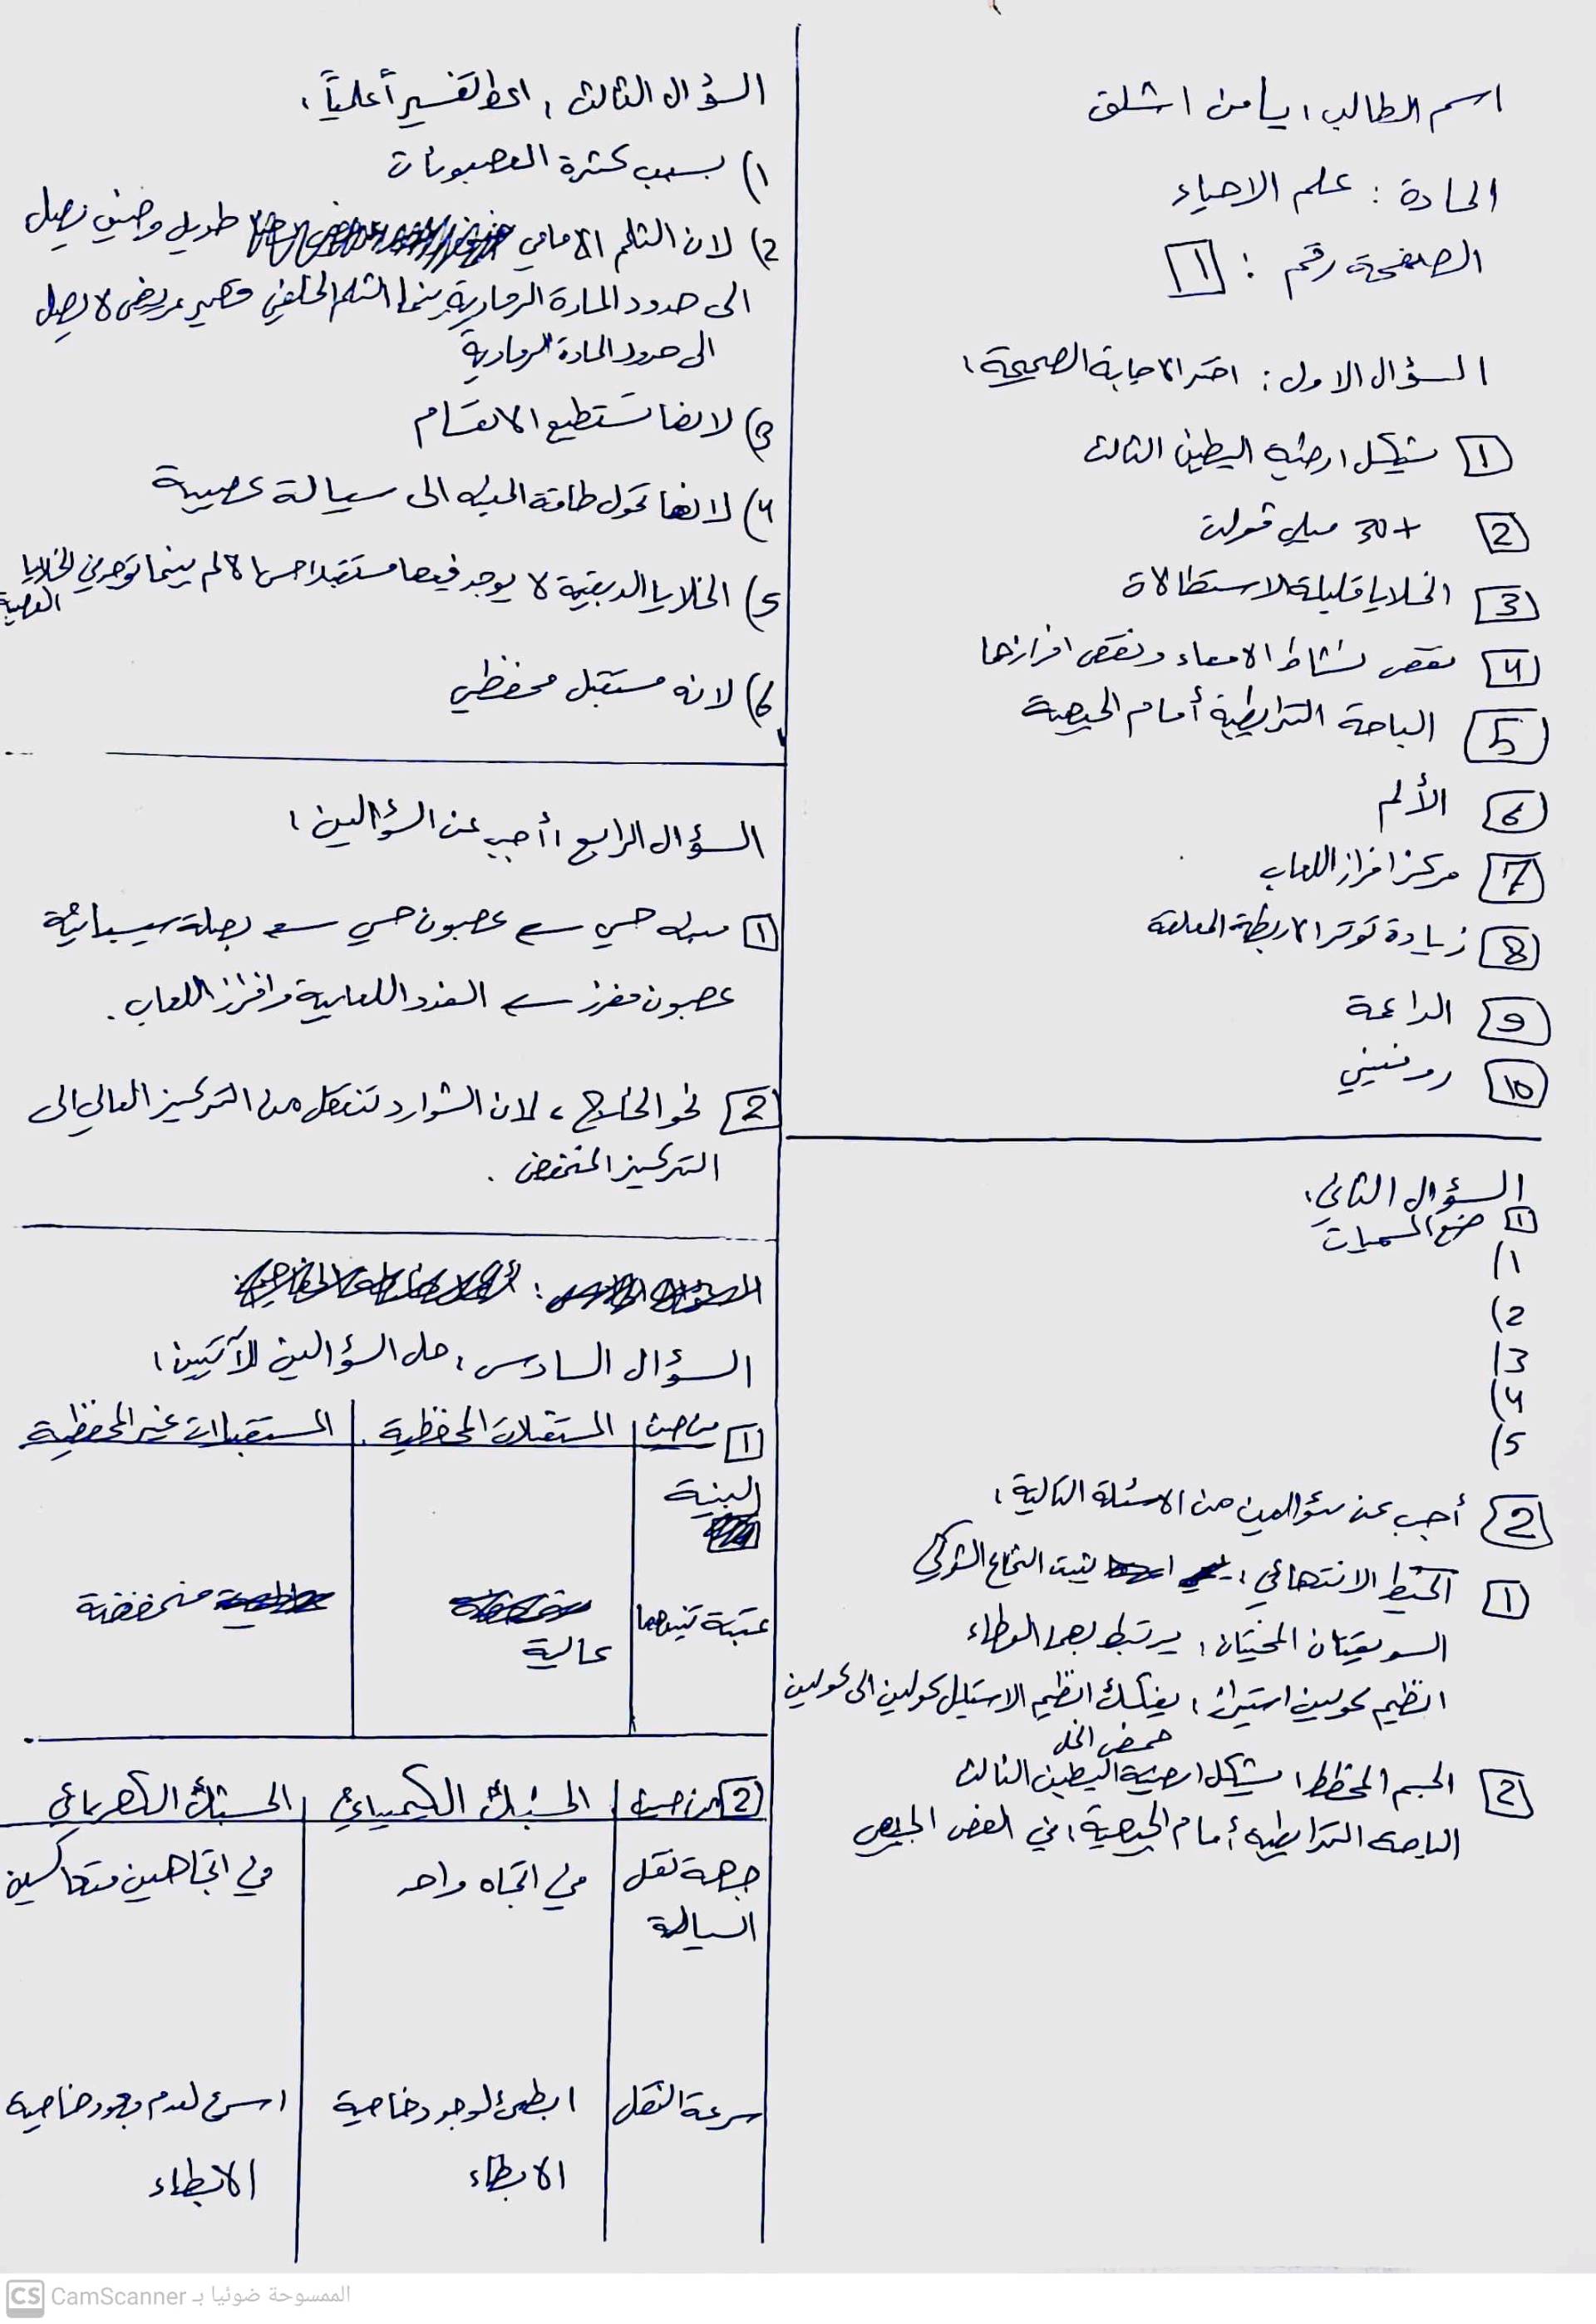 اسم الطالب: يامن اشلق
المادة: علم الاحياء
الصفحة رقم: 1
السؤال الاول: اختر الاجابة الصحيحة:
1 تشكل ارضية البطين الثالث
2 +30 ميلي فولت
3 الخلايا قليلة الاستطالات
4 نقص نشاط الامعاء ونقص افرازها
5 الباحة الترابطية أمام الجبهية
6 الألم
7 مركز افراز اللعاب
8 زيادة توتر الاربطة المعلقة
9 الداعمة
10 روفيني
السؤال الثاني:
1 ضع المسميات
1)
2)
3)
4)
5)
2 أجب عن سؤالين من الاسئلة التالية:
1 الخيط الانتهائي: يثبت النخاع الشوكي
السويقتان المخيتان: يرتبط بهما الوطاء
انظيم كولين استيراز: يفكك انظيم الاستيل كولين الى كولين
حمض الخل
2 الجسم المخطط: يشكل ارضية البطين الثالث
الباحة الترابطية أمام الجبهية: في الفص الجبهي
السؤال الثالث: اعط تفسيراً علمياً:
1) بسبب كثرة العصبونات
2) لان الثلم الامامي طويل وضيق يصل
الى حدود المادة الرمادية بينما الثلم الخلفي قصير عريض لا يصل
الى حدود المادة الرمادية
3) لانها تستطيع الانقسام
4) لانها تحول طاقة المنبه الى سيالة عصبية
5) الخلايا الدبقية لا يوجد فيها مستقبلات حس الالم بينما توجد في الخلايا
العصبية
6) لانه مستقبل محفظي
السؤال الرابع: أجب عن السؤالين:
1 منبه حسي ← عصبون حسي ← بصلة سيسائية
عصبون مفرز ← الغدد اللعابية وافراز اللعاب.
2 نحو الخارج، لان الشوارد تنتقل من التركيز العالي الى
التركيز المنخفض.
السؤال السادس: حل السؤالين الآتيين:
1 من حيث | المستقبلات المحفظية | المستقبلات غير المحفظية
البنية
عتبة تنبيهها | عالية | منخفضة
2 من حيث | المشبك الكيميائي | المشبك الكهربائي
جهة نقل | في اتجاه واحد | في اتجاهين متعاكسين
السيالة
سرعة النقل | ابطئ لوجود خاصية | اسرع لعدم وجود خاصية
الابطاء | الابطاء
CS CamScanner الممسوحة ضوئيا بـ